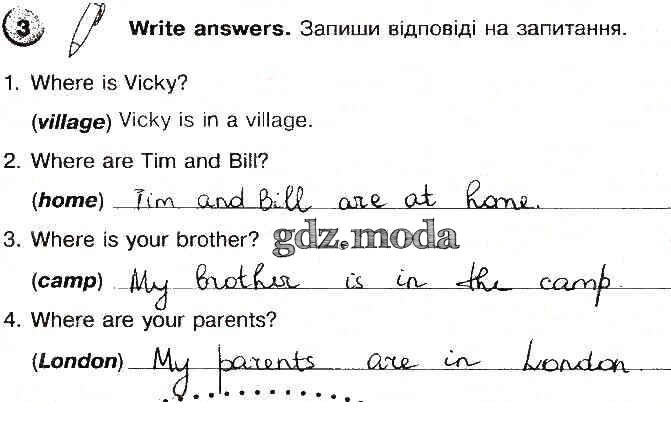 3 Write answers. Запиши відповіді на запитання.
1. Where is Vicky?
(village) Vicky is in a village.
2. Where are Tim and Bill?
(home) Tim and Bill are at home.
3. Where is your brother? gdz.moda
(camp) My brother is in the camp
4. Where are your parents?
(London) My parents are in London